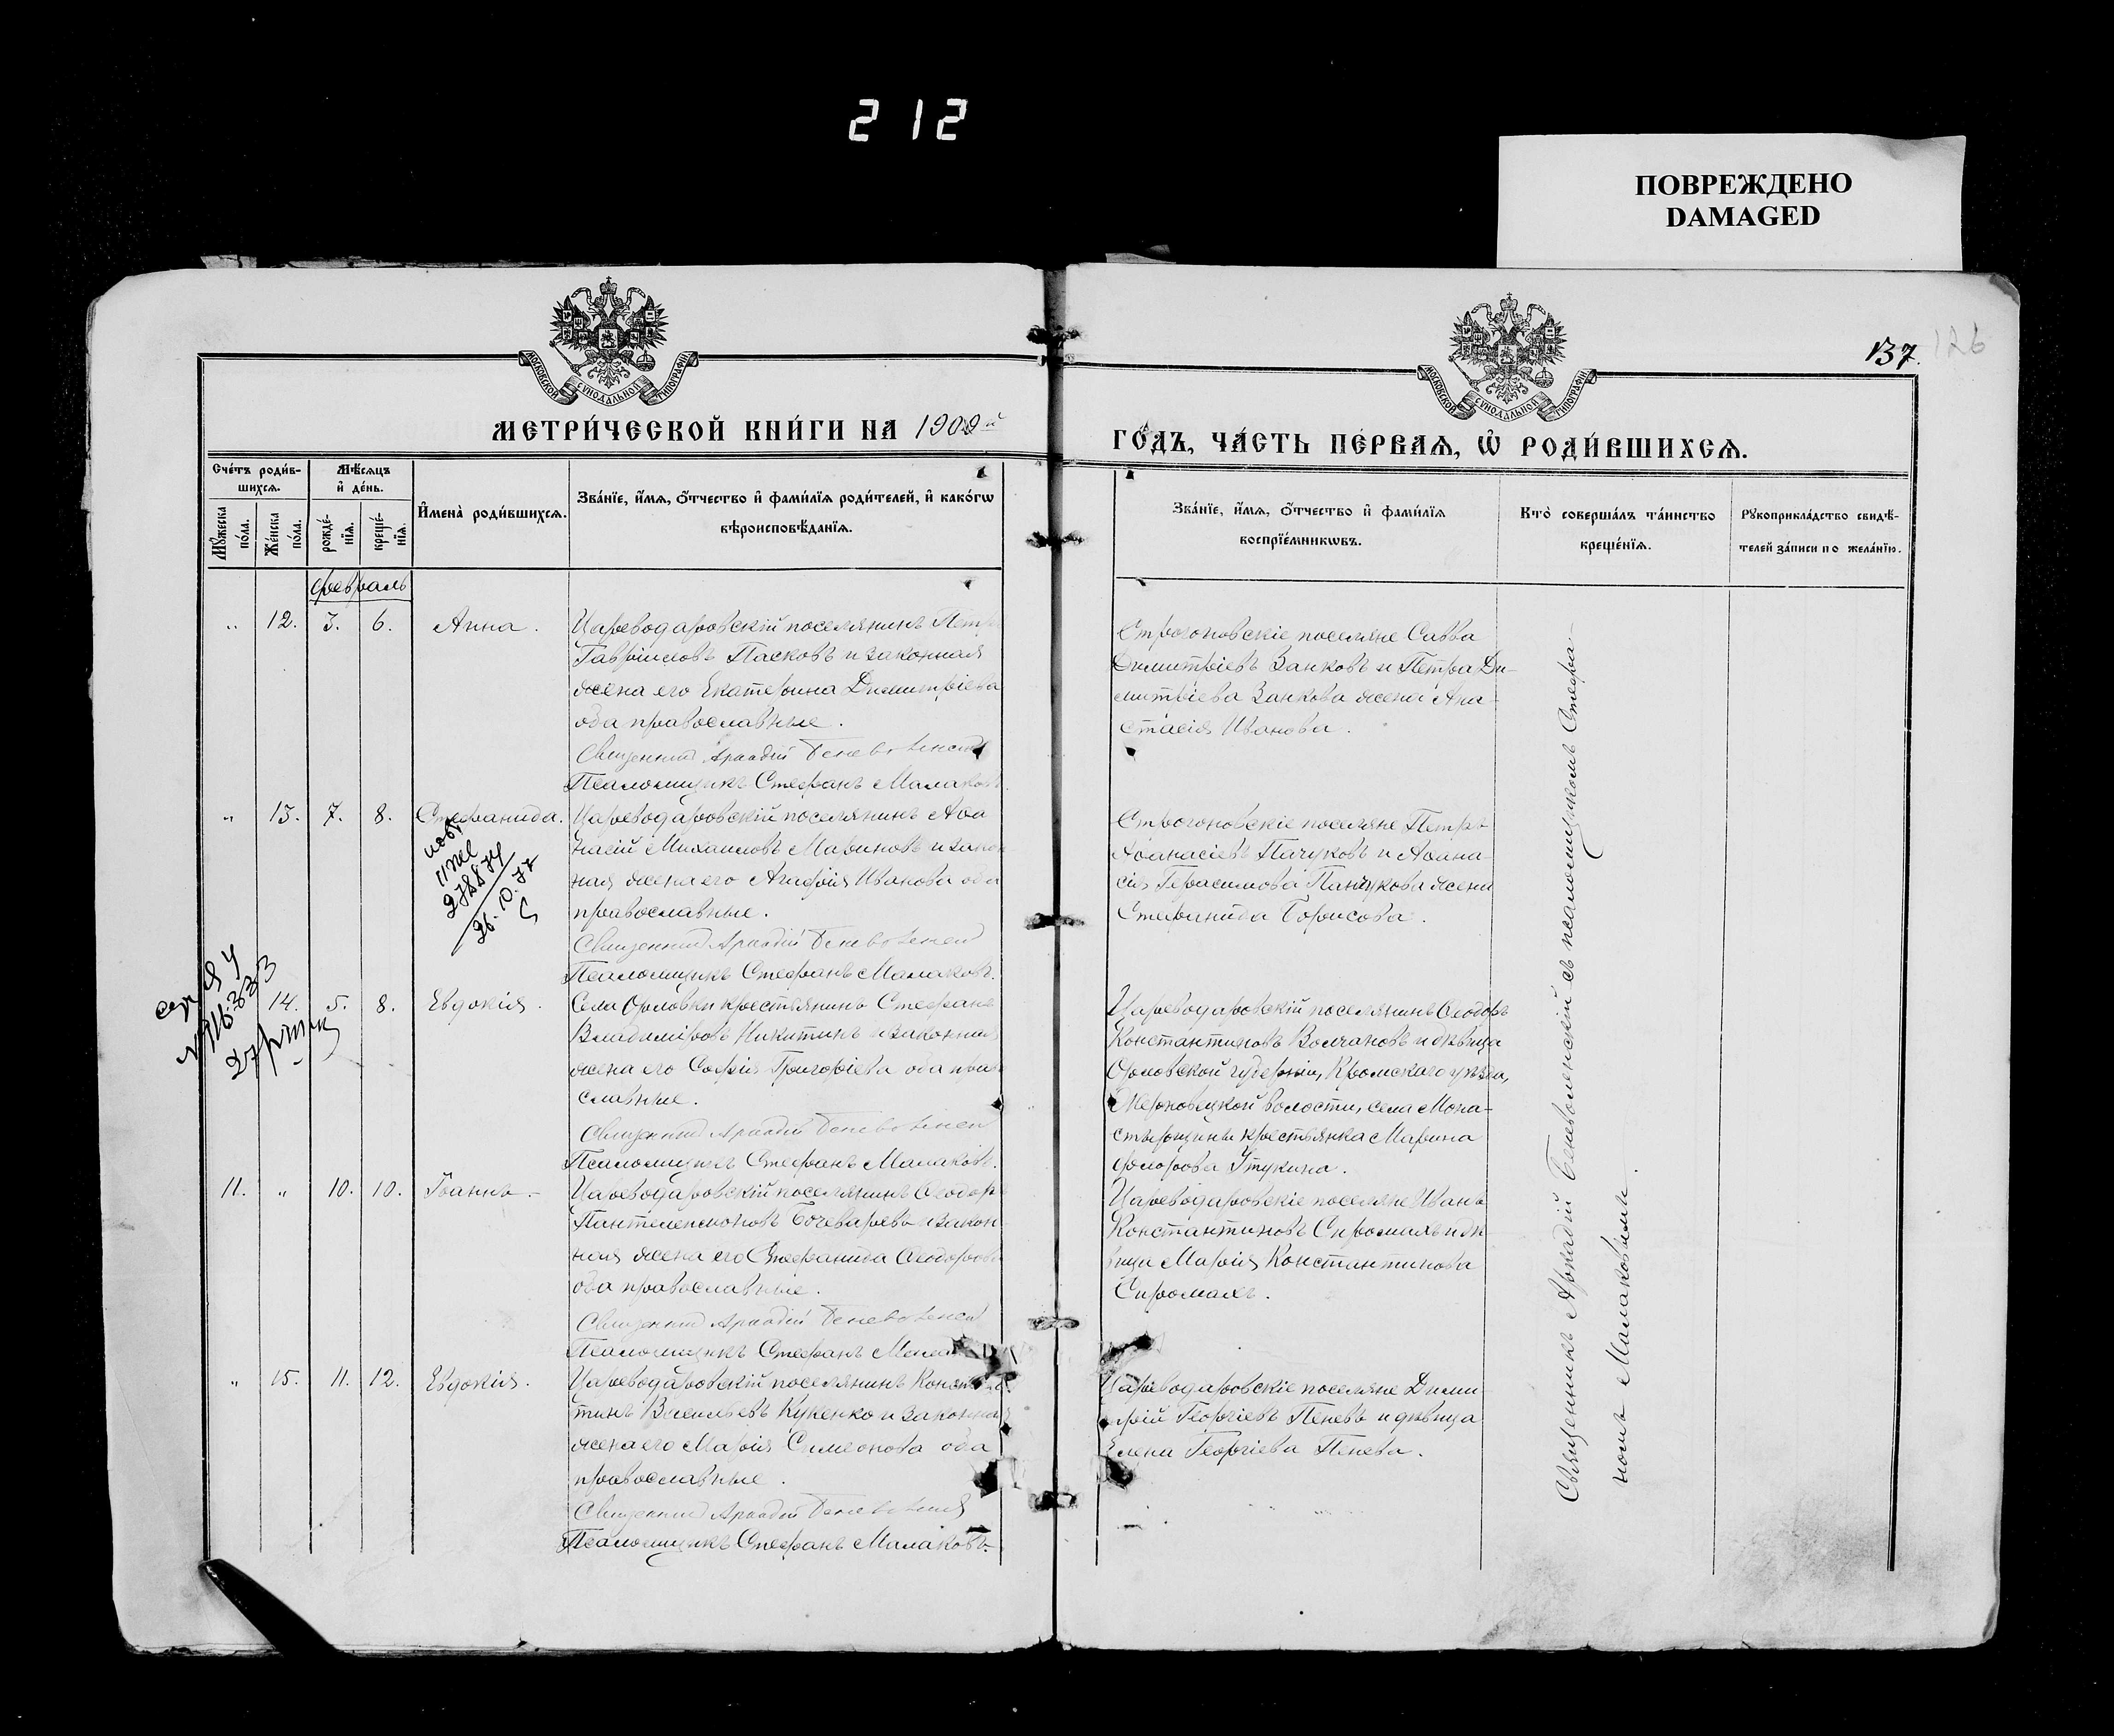 212
ПОВРЕЖДЕНО
DAMAGED
137.
126
МОСКОВСКОЙ СѴНОДАЛЬНОЙ ТИПОГРАФІИ
МОСКОВСКОЙ СѴНОДАЛЬНОЙ ТИПОГРАФІИ
МЕТРИ́ЧЕСКОЙ КНИ́ГИ НА 1909й
ГО́ДЪ, ЧА́СТЬ ПЕ́РВАѦ, Ѡ҆ РОДИ́ВШИХСѦ.
Сче́тъ роди́в-
шихсѧ.
Мꙋ́жеска по́ла.
Же́нска по́ла.
Мѣ́сѧцъ
и҆ де́нь.
рожде́-
нїѧ.
креще́-
нїѧ.
И҆мена̀ роди́вшихсѧ.
Зва́нїе, и҆́мѧ, ѻ҆́тчество и҆ фами́лїѧ роди́телей, и҆ како́гѡ
вѣроисповѣ́данїѧ.
Зва́нїе, и҆́мѧ, ѻ҆́тчество и҆ фами́лїѧ
воспрїе́мникѡвъ.
Кто̀ соверша́лъ та́инство
креще́нїѧ.
Рꙋкоприкла́дство свидѣ́-
телей за́писи по жела́нїю.
февраль
„ 12. 3. 6. Анна.
Цареводаровскій поселянинъ Петръ
Гавріиловъ Пасковъ и законная
жена его Екатерина Димитріева
оба православные.
Священник Аркадій Беневоленский
Псаломщикъ Стефанъ Малаковъ.
Строгоновскіе поселяне Савва
Димитріевъ Занковъ и Петра Ди-
митріева Занкова жена Ана-
стасія Иванова.
„ 13. 7. 8. Стефанида.
Цареводаровскій поселянинъ Аѳа
насій Михаиловъ Мариновъ и закон
ная жена его Агафія Иванова оба
православные.
Священник Аркадій Беневоленский
Псаломщикъ Стефанъ Малаковъ.
278874
26.10.77
Строгоновскіе поселяне Петръ
Аѳанасіевъ Панчуковъ и Аѳана-
сія Герасимова Панчукова жена
Стефанида Борисова.
14. 5. 8. Евдокія.
Села Орловки крестьянинъ Стефанъ
Владиміровъ Никитинъ и законная
жена его Софія Григоріева оба право
славные.
Священник Аркадій Беневоленский
Псаломщикъ Стефанъ Малаковъ.
Цареводаровскій поселянинъ Ѳеодоръ
Константиновъ Волчановъ и дѣвица
Орловской губерніи, Кромскаго уѣзда,
волости, села Мона-
стырщины крестьянка Марина
11. „ 10. 10. Іоаннъ.
Цареводаровскій поселянинъ Ѳеодоръ
Пантелеимоновъ Бочеваровъ и закон
ная жена его Стефанида Ѳеодорова
оба православные.
Священник Аркадій Беневоленский
Псаломщикъ Стефанъ
Цареводаровскіе поселяне Иванъ
Константиновъ Сиромахъ и дѣ
вица Марія Константинова
Сиромахъ.
„ 15. 11. 12. Евдокія.
Цареводаровскій поселянинъ Констан
тинъ Васильевъ Кукенко и законная
жена его Марія Симеонова оба
православные.
Священник Аркадій Беневоленский
Псаломщикъ Стефанъ Малаковъ.
Цареводаровскіе поселяне Дими
трій Георгіевъ Пеневъ и дѣвица
Елена Георгіева Пенева.
Священникъ Аркадій Беневоленскій съ псаломщикомъ Стефа-
номъ Малаковымъ.